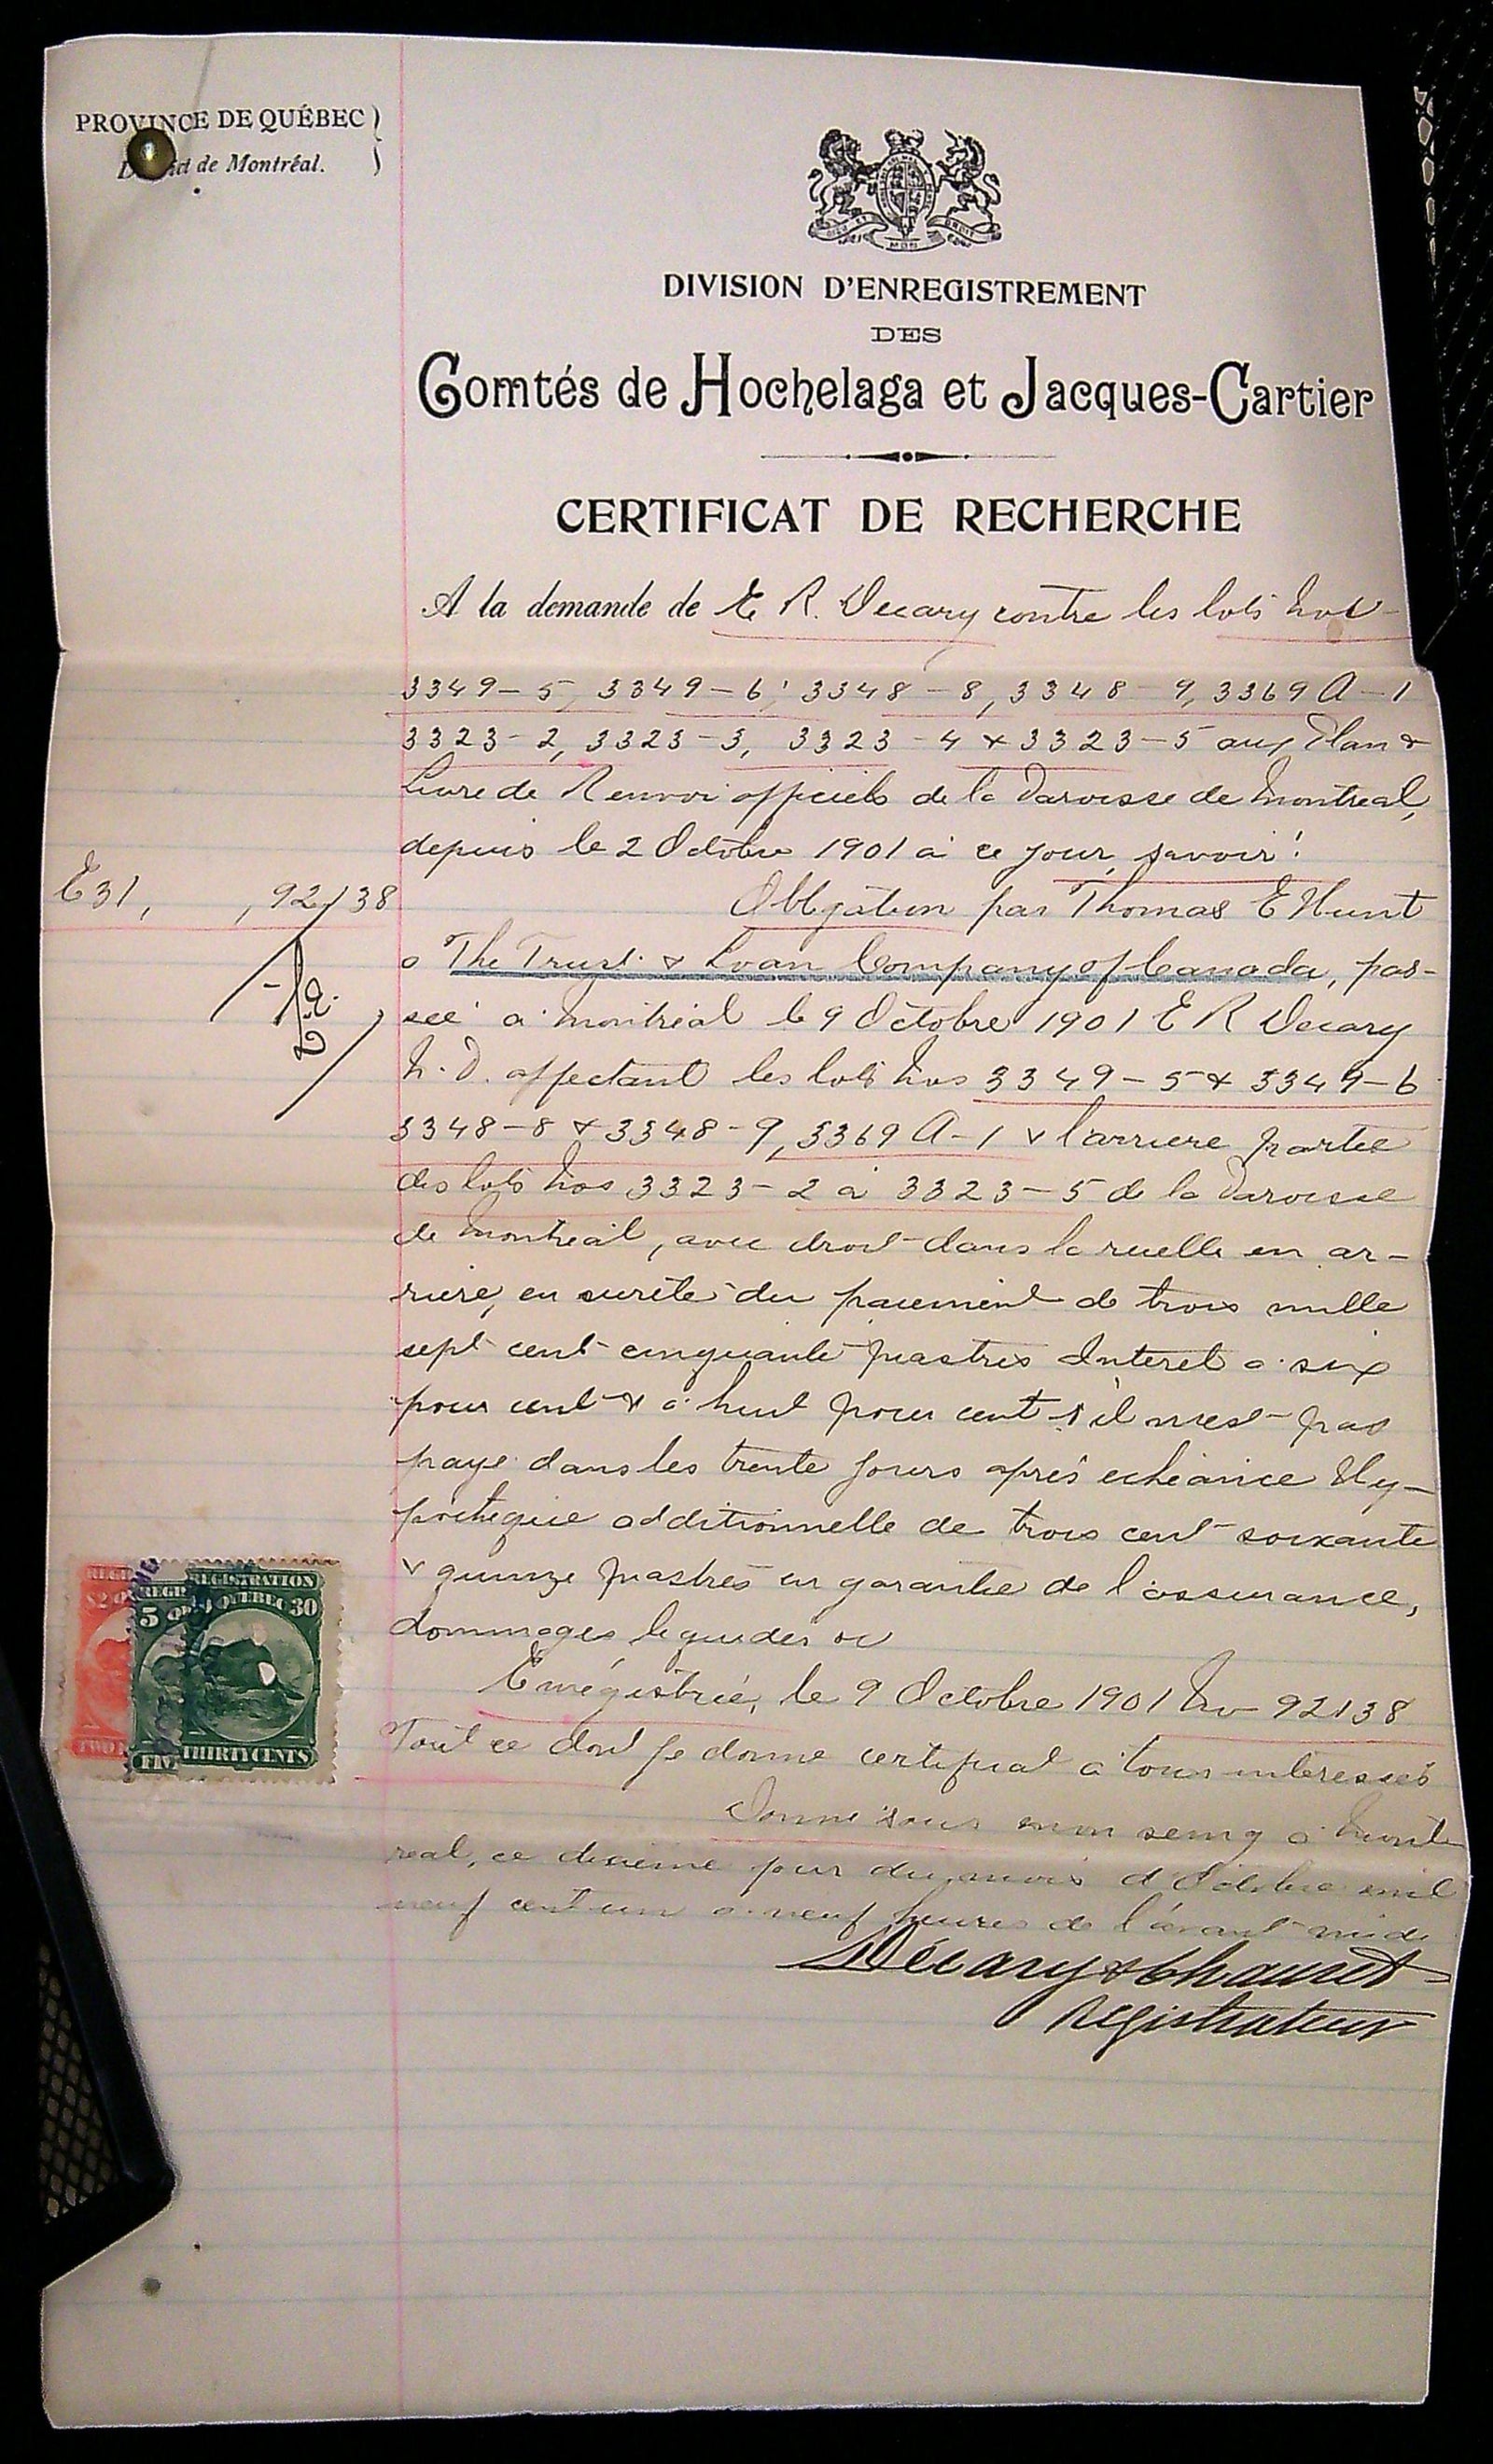 PROVINCE DE QUÉBEC )
District de Montréal. )
DIVISION D'ENREGISTREMENT
DES
Comtés de Hochelaga et Jacques-Cartier
CERTIFICAT DE RECHERCHE
A la demande de E R. Decary contre les lots Nos
3349-5, 3349-6, 3348-8, 3348-9, 3369 A-1
3323-2, 3323-3, 3323-4 & 3323-5 aux Plan &
Livre de Renvoi officiels de la Paroisse de Montreal,
depuis le 2 Octobre 1901 à ce jour, savoir:
E31, , 92138
Obligation par Thomas E Hunt
a The Trust & Loan Company of Canada, pas-
sée a Montréal le 9 Octobre 1901 E R Decary
N. P. affectant les lots Nos 3349-5 & 3349-6
3348-8 & 3348-9, 3369 A-1 & l'arriere partie
des lots Nos 3323-2 à 3323-5 de la Paroisse
de Montreal, avec droit dans la ruelle en ar-
riere, en sureté du paiement de trois mille
sept cent cinquante piastres Interet a six
pour cent & a huit pour cent s'il n'est pas
payé dans les trente jours après echéance Hy-
pothèque additionnelle de trois cent soixante
& quinze piastres en garantie de l'assurance,
dommages liquidés &c
Enrégistrée, le 9 Octobre 1901 No 92138
Tout ce dont je donne certificat a tous interessés
Donné sous mon seing a Mont-
real, ce dixieme jour du mois d'Octobre mil
neuf cent un a neuf heures de l'avant midi
Décary & Chauret
Registrateur
REGISTRATION
QUEBEC 30
THIRTY CENTS
REGI
5
FIVE
REGI
$2
TWO